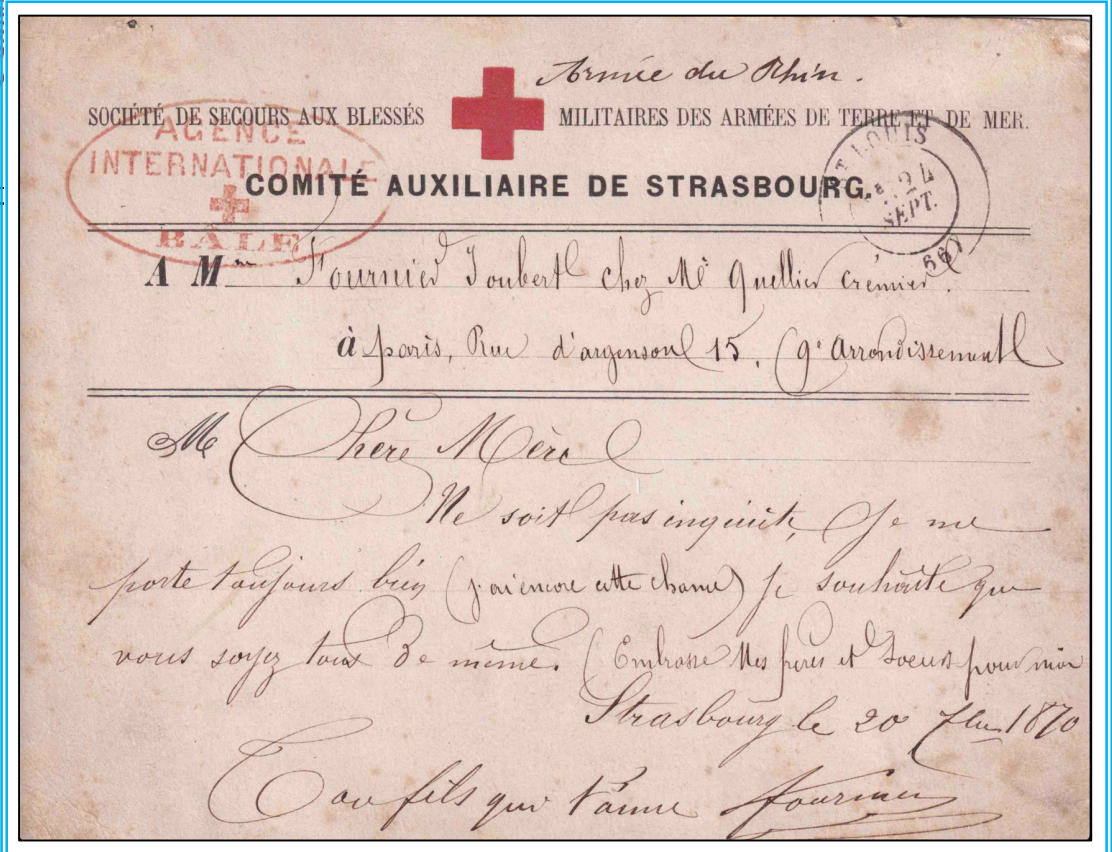 Armée du Rhin.
SOCIÉTÉ DE SECOURS AUX BLESSÉS MILITAIRES DES ARMÉES DE TERRE ET DE MER.
AGENCE
INTERNATIONALE
BÂLE
COMITÉ AUXILIAIRE DE STRASBOURG.
ST LOUIS
24
SEPT.
(66)
A Mme Fournier Joubert chez Mr Quellier cremier.
à paris, Rue d'argenson 15. (9e Arrondissement
M Chère Mère
Ne soit pas inquiete, Je me
porte toujours bien (j'ai encore cette chance) je souhaite que
vous soyez tous de même. (Embrasse Mes frères et Soeurs pour moi
Strasbourg le 20 7bre 1870
Ton fils qui t'aime Fournier